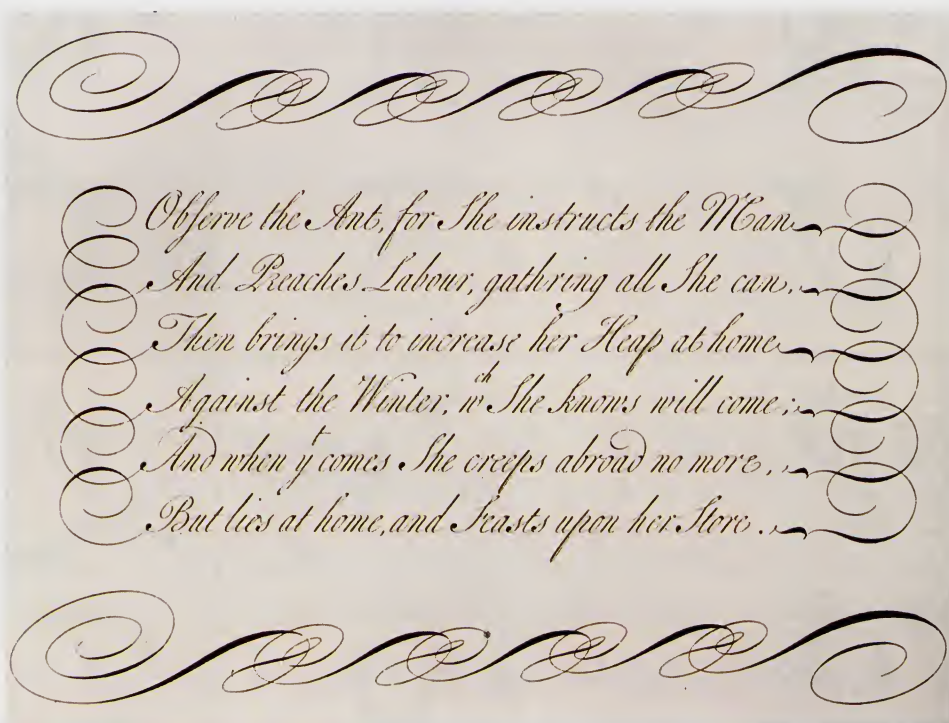 Observe the Ant, for She instructs the Man
And Preaches Labour, gathring all She can.
Then brings it to increase her Heap at home
Against the Winter, wch She knows will come;
And when yt comes She creeps abroad no more,
But lies at home, and Feasts upon her Store.